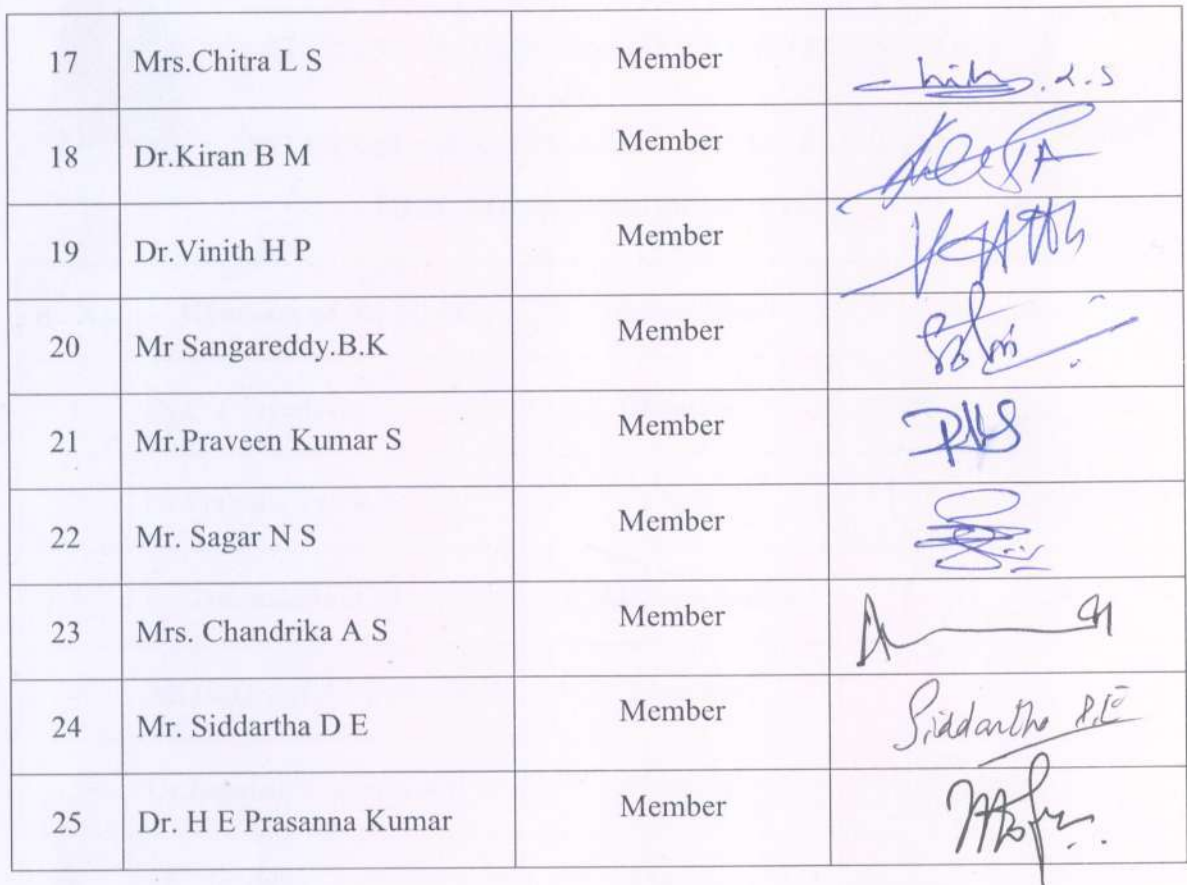 17 Mrs.Chitra L S Member
18 Dr.Kiran B M Member
19 Dr.Vinith H P Member
20 Mr Sangareddy.B.K Member
21 Mr.Praveen Kumar S Member
22 Mr. Sagar N S Member
23 Mrs. Chandrika A S Member
24 Mr. Siddartha D E Member Siddartha D.E
25 Dr. H E Prasanna Kumar Member